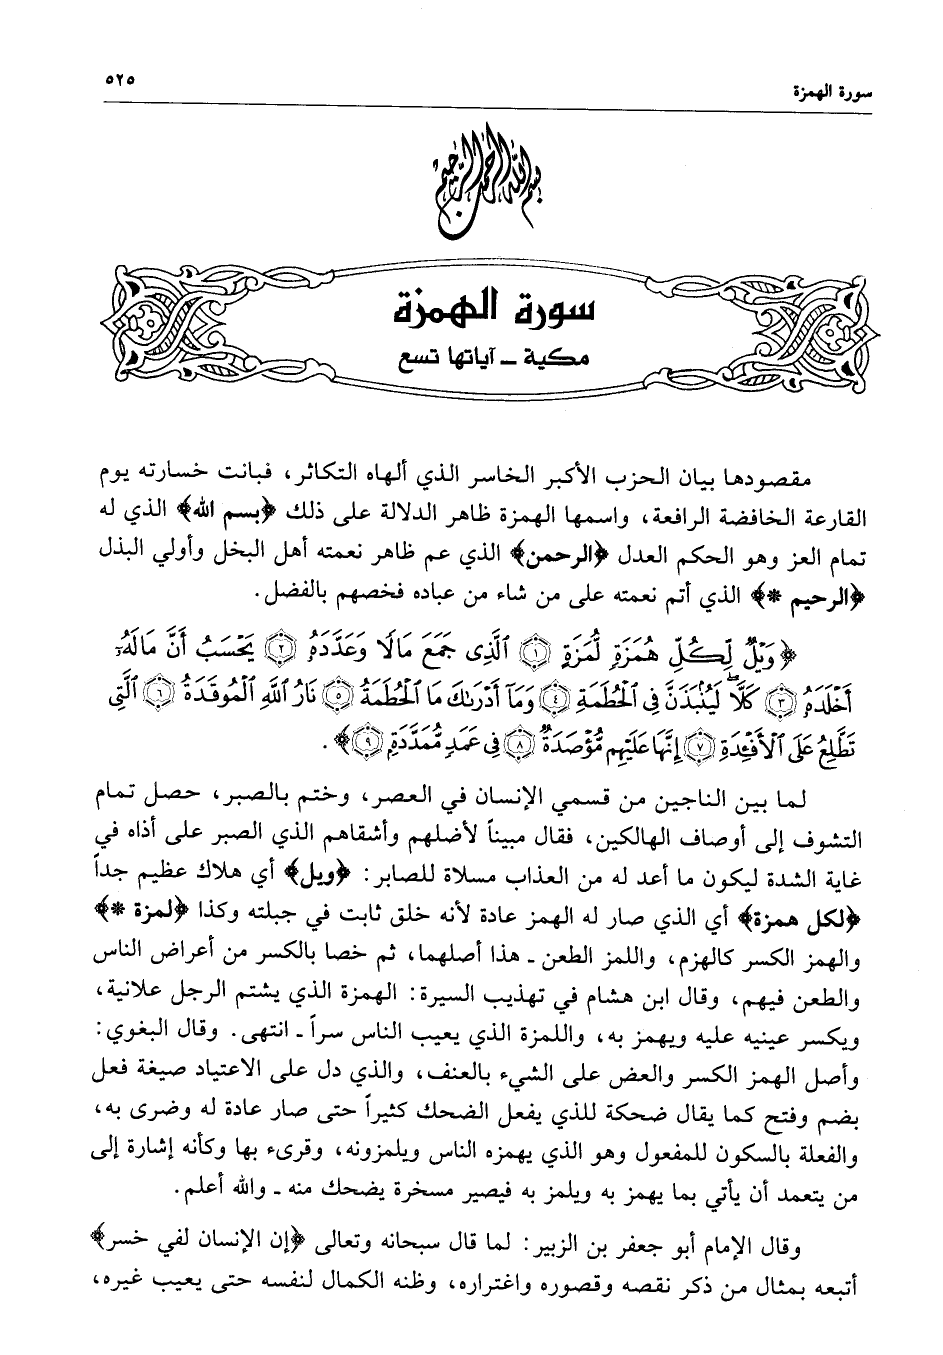 سورة الهمزة
٥٢٥
بسم الله الرحمن الرحيم
سورة الهمزة
مكية ــ آياتها تسع
مقصودها بيان الحزب الأكبر الخاسر الذي ألهاه التكاثر، فبانت خسارته يوم
القارعة الخافضة الرافعة، واسمها الهمزة ظاهر الدلالة على ذلك ﴿بسم الله﴾ الذي له
تمام العز وهو الحكم العدل ﴿الرحمن﴾ الذي عم ظاهر نعمته أهل البخل وأولي البذل
﴿الرحيم *﴾ الذي أتم نعمته على من شاء من عباده فخصهم بالفضل.
﴿وَيْلٌ لِّكُلِّ هُمَزَةٍ لُّمَزَةٍ ۝١ ٱلَّذِى جَمَعَ مَالًا وَعَدَّدَهُۥ ۝٢ يَحْسَبُ أَنَّ مَالَهُۥٓ
أَخْلَدَهُۥ ۝٣ كَلَّا ۖ لَيُنۢبَذَنَّ فِى ٱلْحُطَمَةِ ۝٤ وَمَآ أَدْرَىٰكَ مَا ٱلْحُطَمَةُ ۝٥ نَارُ ٱللَّهِ ٱلْمُوقَدَةُ ۝٦ ٱلَّتِى
تَطَّلِعُ عَلَى ٱلْأَفْـِٔدَةِ ۝٧ إِنَّهَا عَلَيْهِم مُّؤْصَدَةٌ ۝٨ فِى عَمَدٍ مُّمَدَّدَةٍۭ ۝٩﴾.
لما بين الناجين من قسمي الإنسان في العصر، وختم بالصبر، حصل تمام
التشوف إلى أوصاف الهالكين، فقال مبيناً لأضلهم وأشقاهم الذي الصبر على أذاه في
غاية الشدة ليكون ما أعد له من العذاب مسلاة للصابر: ﴿ويل﴾ أي هلاك عظيم جداً
﴿لكل همزة﴾ أي الذي صار له الهمز عادة لأنه خلق ثابت في جبلته وكذا ﴿لمزة *﴾
والهمز الكسر كالهزم، واللمز الطعن ـ هذا أصلهما، ثم خصا بالكسر من أعراض الناس
والطعن فيهم، وقال ابن هشام في تهذيب السيرة: الهمزة الذي يشتم الرجل علانية،
ويكسر عينيه عليه ويهمز به، واللمزة الذي يعيب الناس سراً ـ انتهى. وقال البغوي:
وأصل الهمز الكسر والعض على الشيء بالعنف، والذي دل على الاعتياد صيغة فعل
بضم وفتح كما يقال ضحكة للذي يفعل الضحك كثيراً حتى صار عادة له وضرى به،
والفعلة بالسكون للمفعول وهو الذي يهمزه الناس ويلمزونه، وقرىء بها وكأنه إشارة إلى
من يتعمد أن يأتي بما يهمز به ويلمز به فيصير مسخرة يضحك منه ـ والله أعلم.
وقال الإمام أبو جعفر بن الزبير: لما قال سبحانه وتعالى ﴿إن الإنسان لفي خسر﴾
أتبعه بمثال من ذكر نقصه وقصوره واغتراره، وظنه الكمال لنفسه حتى يعيب غيره،